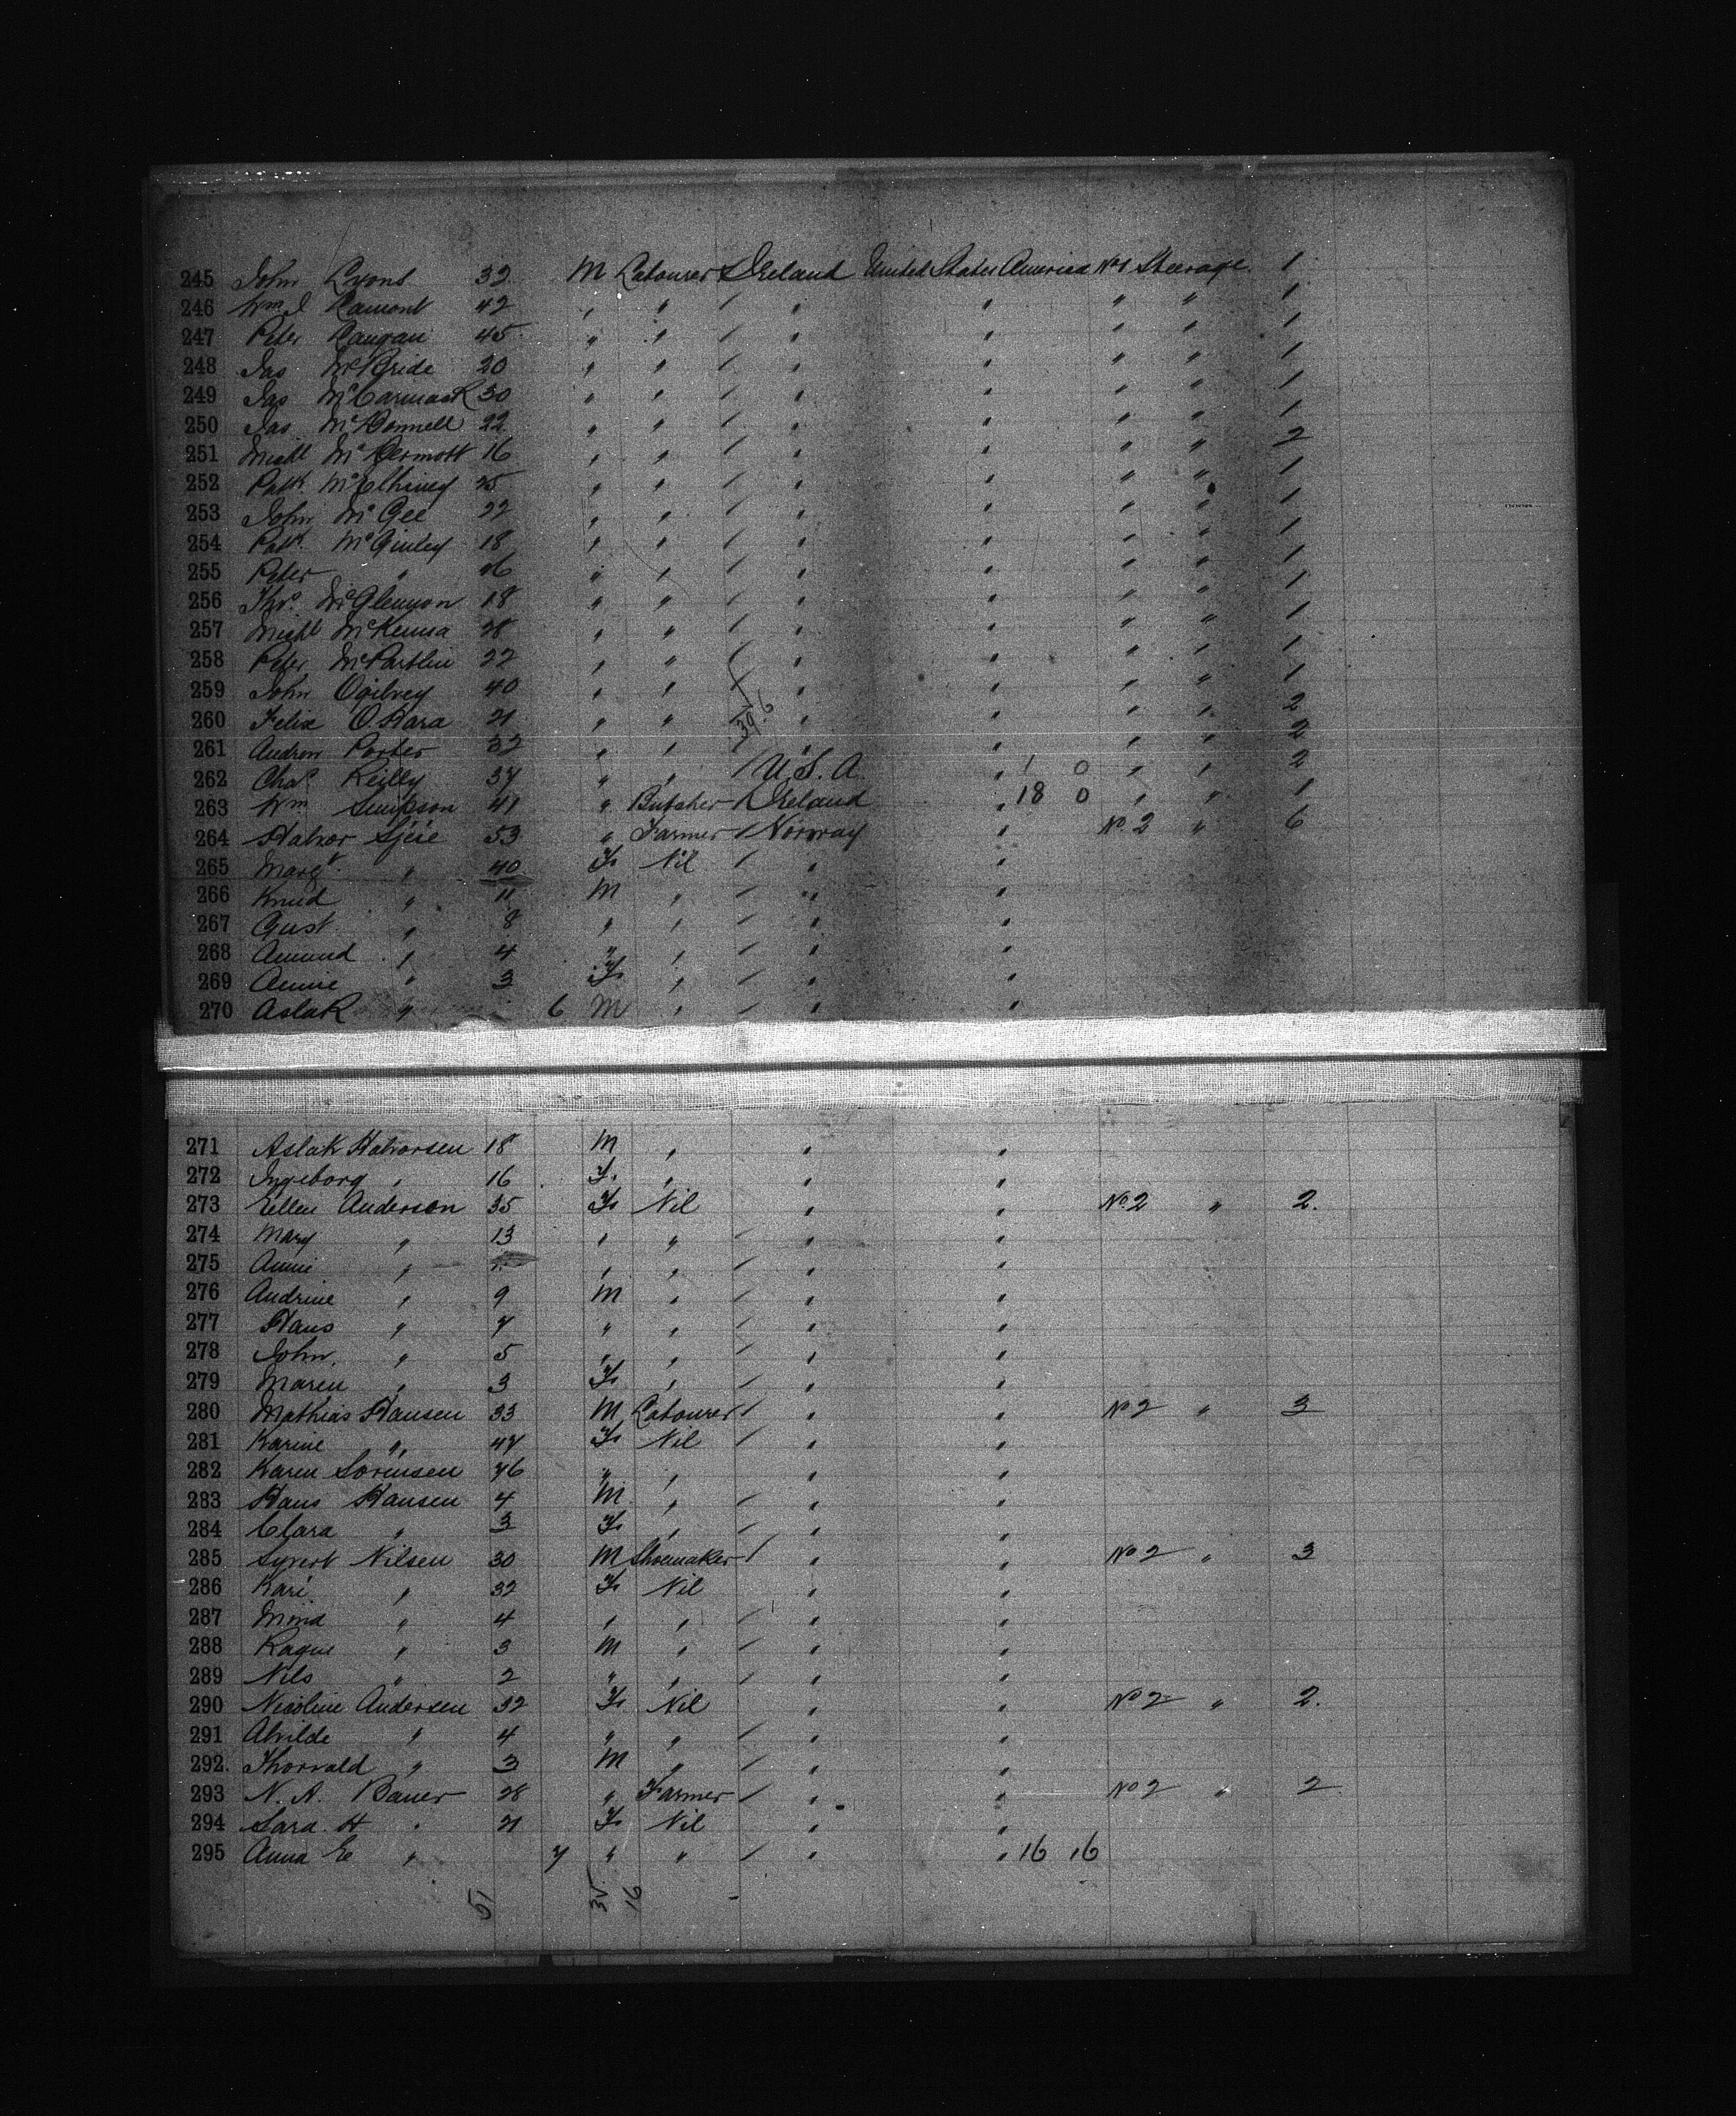 245 John Lyons 32 M Labourer Ireland United States America No 1 Steerage. 1
246 Wm J Lamont 42 " " " " " " 1
247 Peter Langan 45 " " " " " " 1
248 Jas McBride 20 " " " " " " 1
249 Jas McCormack 30 " " " " " " 1
250 Jas McConnell 22 " " " " " " 1
251 Michl McDermott 16 " " " " " " 2
252 Patk. McElhiney 25 " " " " " " 1
253 John McGee 22 " " " " " " 1
254 Patk. McGinley 18 " " " " " " 1
255 Peter " 26 " " " " " " 1
256 Thos. McGlennon 18 " " " " " " 1
257 Michl McKenna 28 " " " " " " 1
258 Peter McPartlin 22 " " " " " " 1
259 John Ogilvey 40 " " " " " " 1
260 Felix O'Hara 21 " " " " " " 2
261 Andrew Porter 32 " " " " " " 2
262 Chas Reilly 37 " " U.S.A. " 1 0 " " 2
263 Wm Simpson 41 " Butcher Ireland " 18 0 " " 1
264 Halvor 53 " Farmer Norway " No 2 " 6
265 Margt. " 40 F Nil " "
266 Knud " 11 M " " "
267 Gust. " 8 " " " "
268 Amund " 4 " " " "
269 Annie " 3 F " " "
270 Aslak " 6 M " " "
271 Aslak Halvorsen 18 M " " "
272 Ingeborg " 16 F. " " "
273 Ellen Anderson 35 F Nil " " No 2 " 2.
274 Mary " 13 " " " "
275 Annie " " " " "
276 Andrine " 9 M " " "
277 Hans " 7 " " " "
278 John. " 5 " " " "
279 Maren " 3 F " " "
280 Mathias Hansen 33 M Labourer " " No 2 " 3
281 Karine " 47 F Nil " "
282 Karen Sorensen 76 " " " "
283 Hans Hansen 4 M " " "
284 Clara " 3 F " " "
285 Syvert Nilsen 30 M Shoemaker " " No 2 " 3
286 Kari " 32 F Nil " "
287 " 4 " " " "
288 " 3 M " " "
289 Nils " 2 " " " "
290 Nicoline Andersen 32 F Nil " " No 2 " 2.
291 Alvilde " 4 " " " "
292. Thorvald " 3 M " " "
293 N. A. Bauer 28 " Farmer " " No 2 " 2
294 Sara. H " 21 F Nil " "
295 Anna E " 7 " " " " 16 16
51 35 16